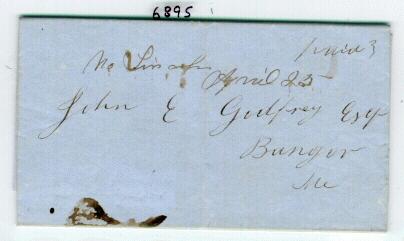 6895
Paid 3
No Lincoln
April 25
John E Godfrey Esqr
Bangor
Me